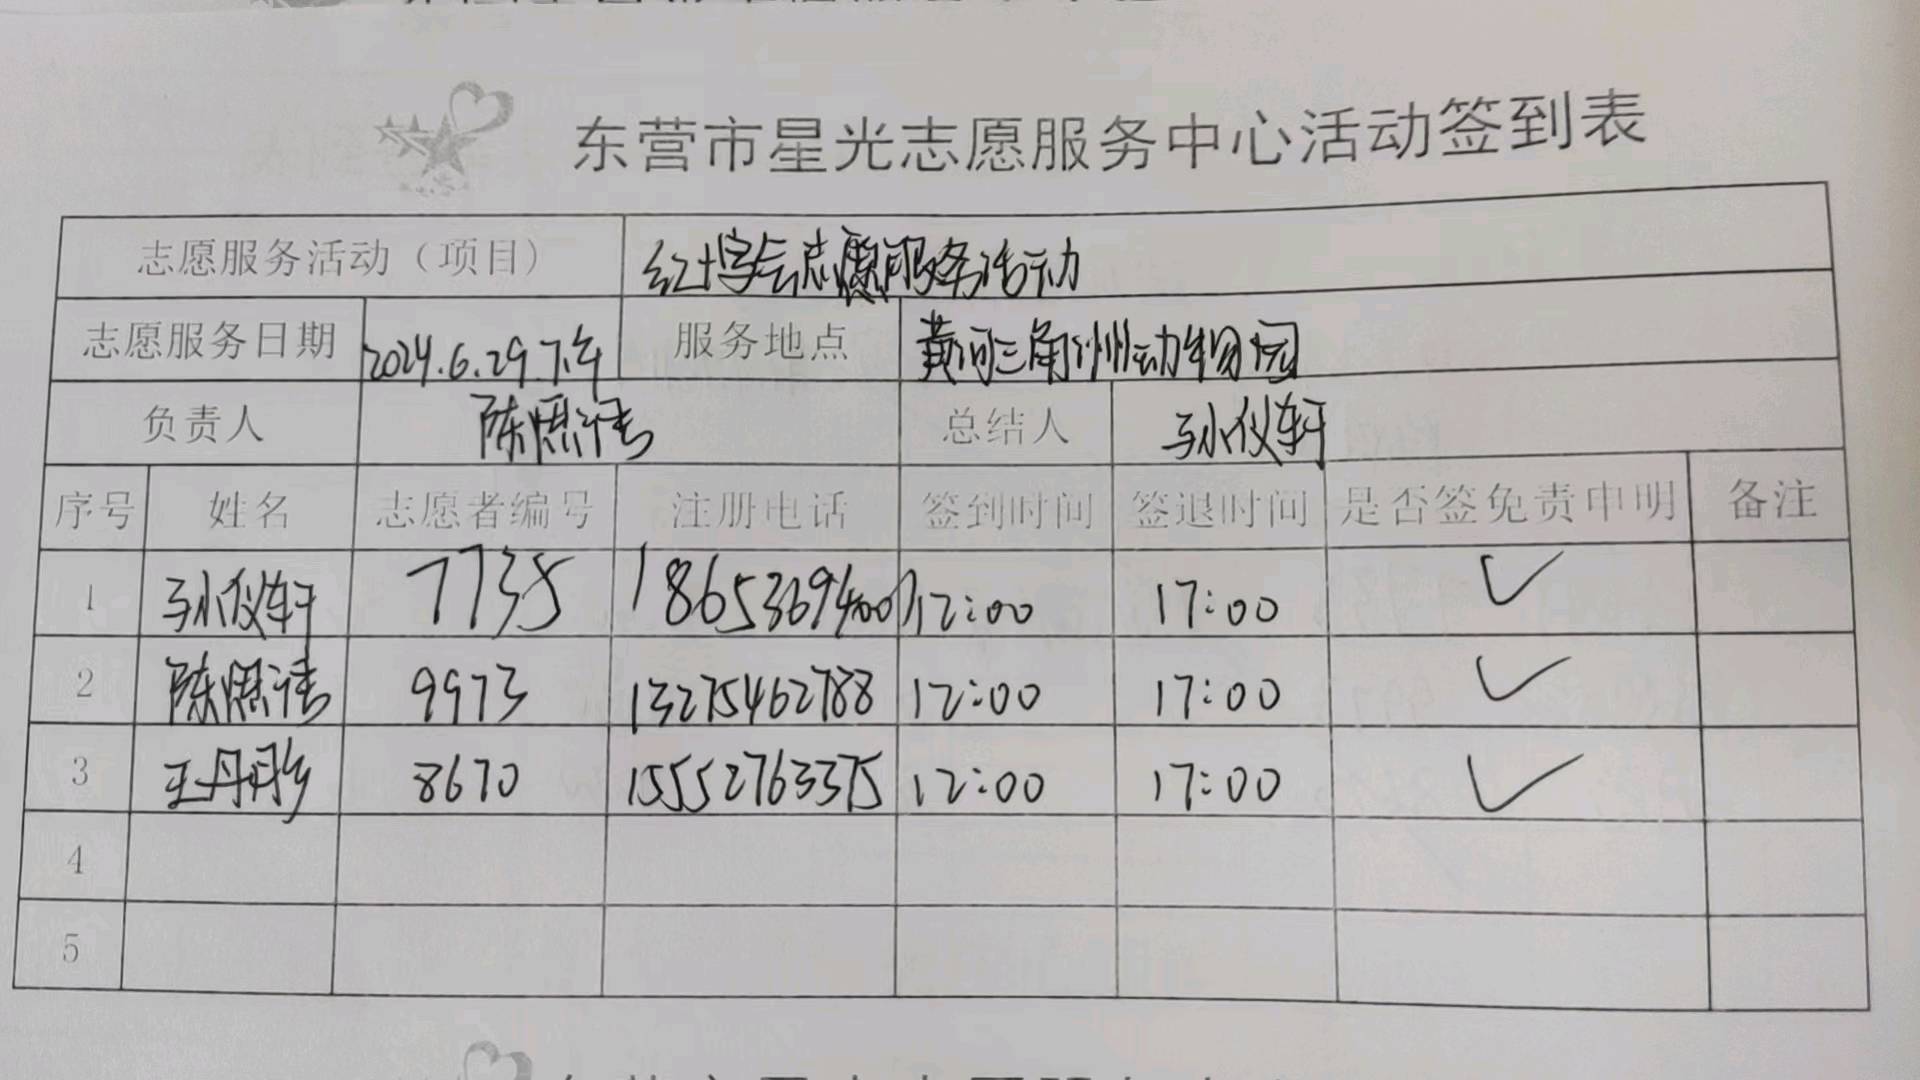 东营市星光志愿服务中心活动签到表
志愿服务活动（项目） 红十字会志愿服务活动
志愿服务日期 2024.6.29.下午 服务地点 黄河三角洲动物园
负责人 陈思诗 总结人 孙仪轩
序号 姓名 志愿者编号 注册电话 签到时间 签退时间 是否签免责申明 备注
1 孙仪轩 7735 12:00 17:00 ✓
2 9973 13275462788 12:00 17:00 ✓
3 王丹彤 8670 15552763375 12:00 17:00 ✓
4
5